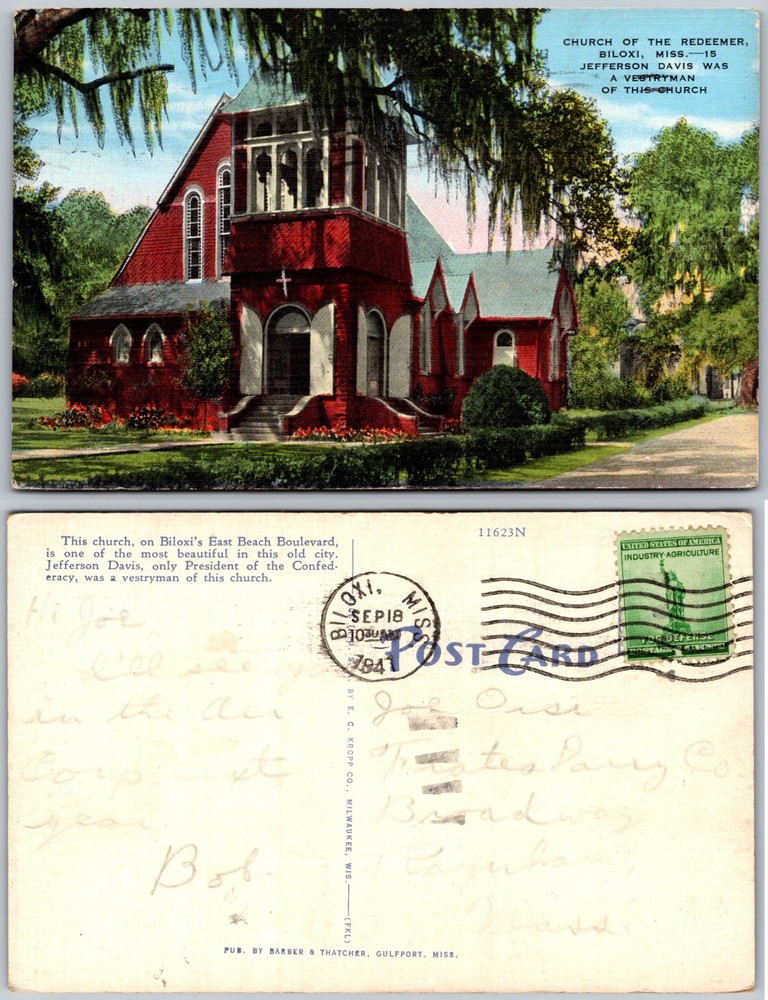 CHURCH OF THE REDEEMER,
BILOXI, MISS.—15
JEFFERSON DAVIS WAS
A VESTRYMAN
OF THIS CHURCH
This church, on Biloxi's East Beach Boulevard,
is one of the most beautiful in this old city.
Jefferson Davis, only President of the Confed-
eracy, was a vestryman of this church.
11623N
UNITED STATES OF AMERICA
INDUSTRY·AGRICULTURE
FOR DEFENSE
BILOXI, MISS
SEP 18
10
1941
POST CARD
Hi Joe
I'll see you
in the Air
Corp next
year
Bob
Joe
Parry Co
Broadway
Raynham,
Mass.
BY E. C. KROPP CO., MILWAUKEE, WIS.
(FKL)
PUB. BY BARBER & THATCHER, GULFPORT, MISS.